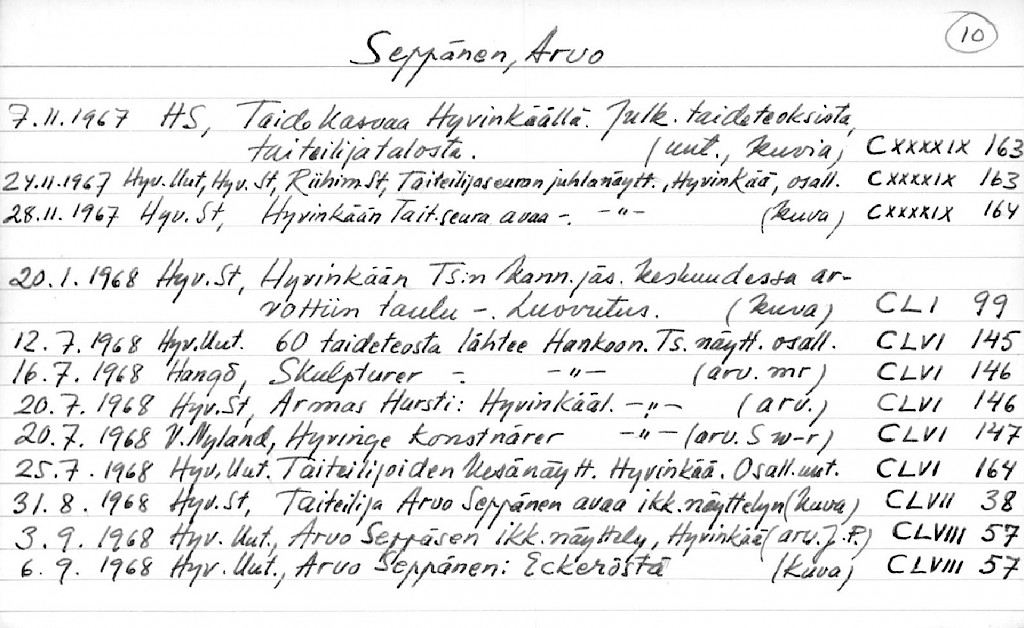 10
Seppänen, Arvo
7.11.1967 HS, Taide kasvaa Hyvinkäällä. Julk. taideteoksista,
taiteilijatalosta. (uut., kuvia) CXXXXIX 163
24.11.1967 Hyv.Uut, Hyv.St, Riihim.St, Taiteilijaseuran juhlanäytt., Hyvinkää, osall. CXXXXIX 163
28.11.1967 Hyv.St, Hyvinkään Tait.seura avaa -. -"- (kuva) CXXXXIX 164
20.1.1968 Hyv.St, Hyvinkään Ts:n kann.jäs. keskuudessa ar-
vottiin taulu -. Luovutus. (kuva) CLI 99
12.7.1968 Hyv.Uut. 60 taideteosta lähtee Hankoon. Ts. näytt. osall. CLVI 145
16.7.1968 Hangö, Skulpturer -. -"- (arv. mr) CLVI 146
20.7.1968 Hyv.St, Armas Hursti: Hyvinkääl. -"- (arv.) CLVI 146
20.7.1968 V.Nyland, Hyvinge konstnärer -"- (arv. S w-r) CLVI 147
25.7.1968 Hyv.Uut. Taiteilijoiden kesänäytt. Hyvinkää. Osall. uut. CLVI 164
31.8.1968 Hyv.St, Taiteilija Arvo Seppänen avaa ikk.näyttelyn (kuva) CLVII 38
3.9.1968 Hyv.Uut., Arvo Seppäsen ikk.näyttely, Hyvinkää (arv. J.P.) CLVIII 57
6.9.1968 Hyv.Uut., Arvo Seppänen: Eckeröstä (kuva) CLVIII 57